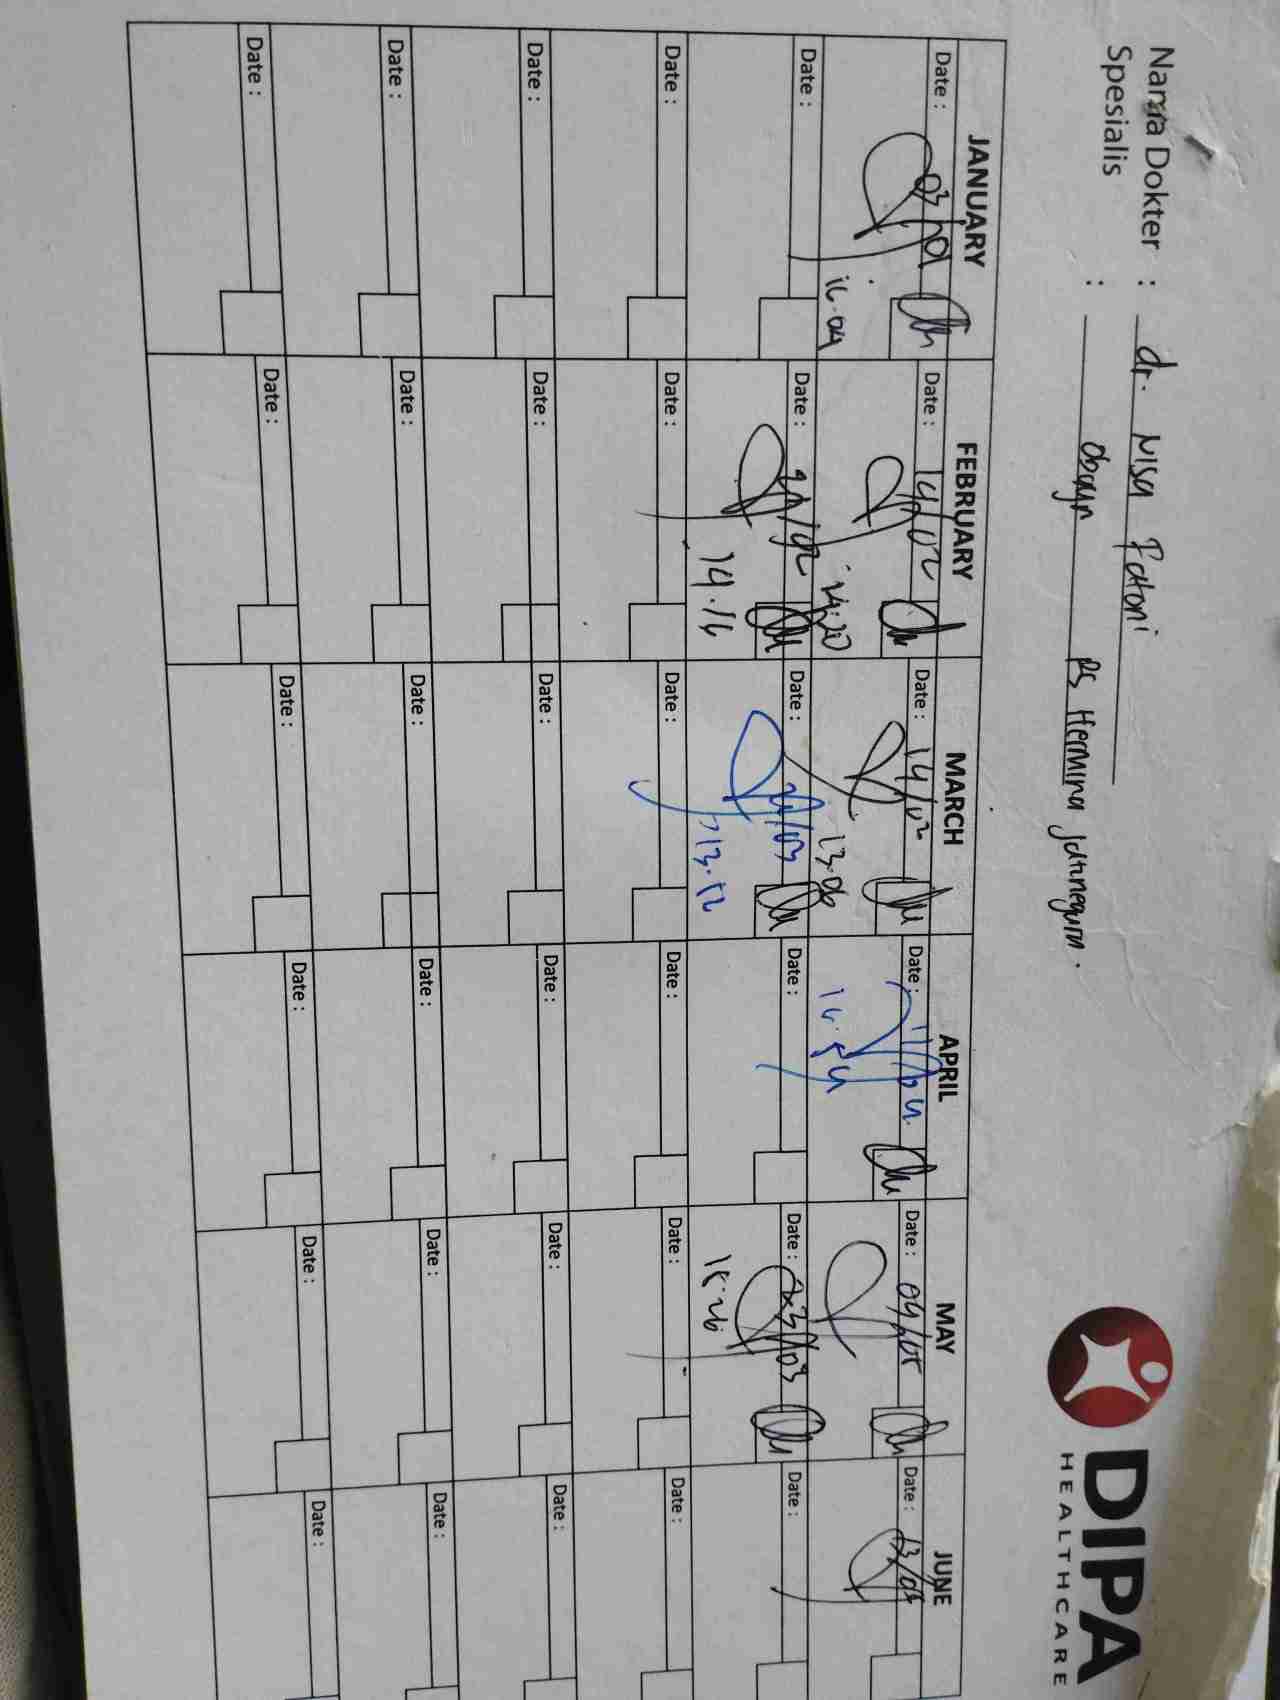 Nama Dokter : dr. Nisa Fatoni
Spesialis : Obgyn RS Hermina Jatinegara.
DIPA
HEALTHCARE
JANUARY FEBRUARY MARCH APRIL MAY JUNE
Date : 03/01 Date : 14/02 Date : 14/03 Date : Date : 09/05 Date : 13/06
16.04 14:20 13.06 16.54
Date : Date : Date : 21/03 Date : Date : 23/03 Date :
14.16 13.12
Date : Date : Date : Date : Date : Date :
Date : Date : Date : Date : Date : Date :
Date : Date : Date : Date : Date : Date :
Date : Date : Date : Date : Date : Date :